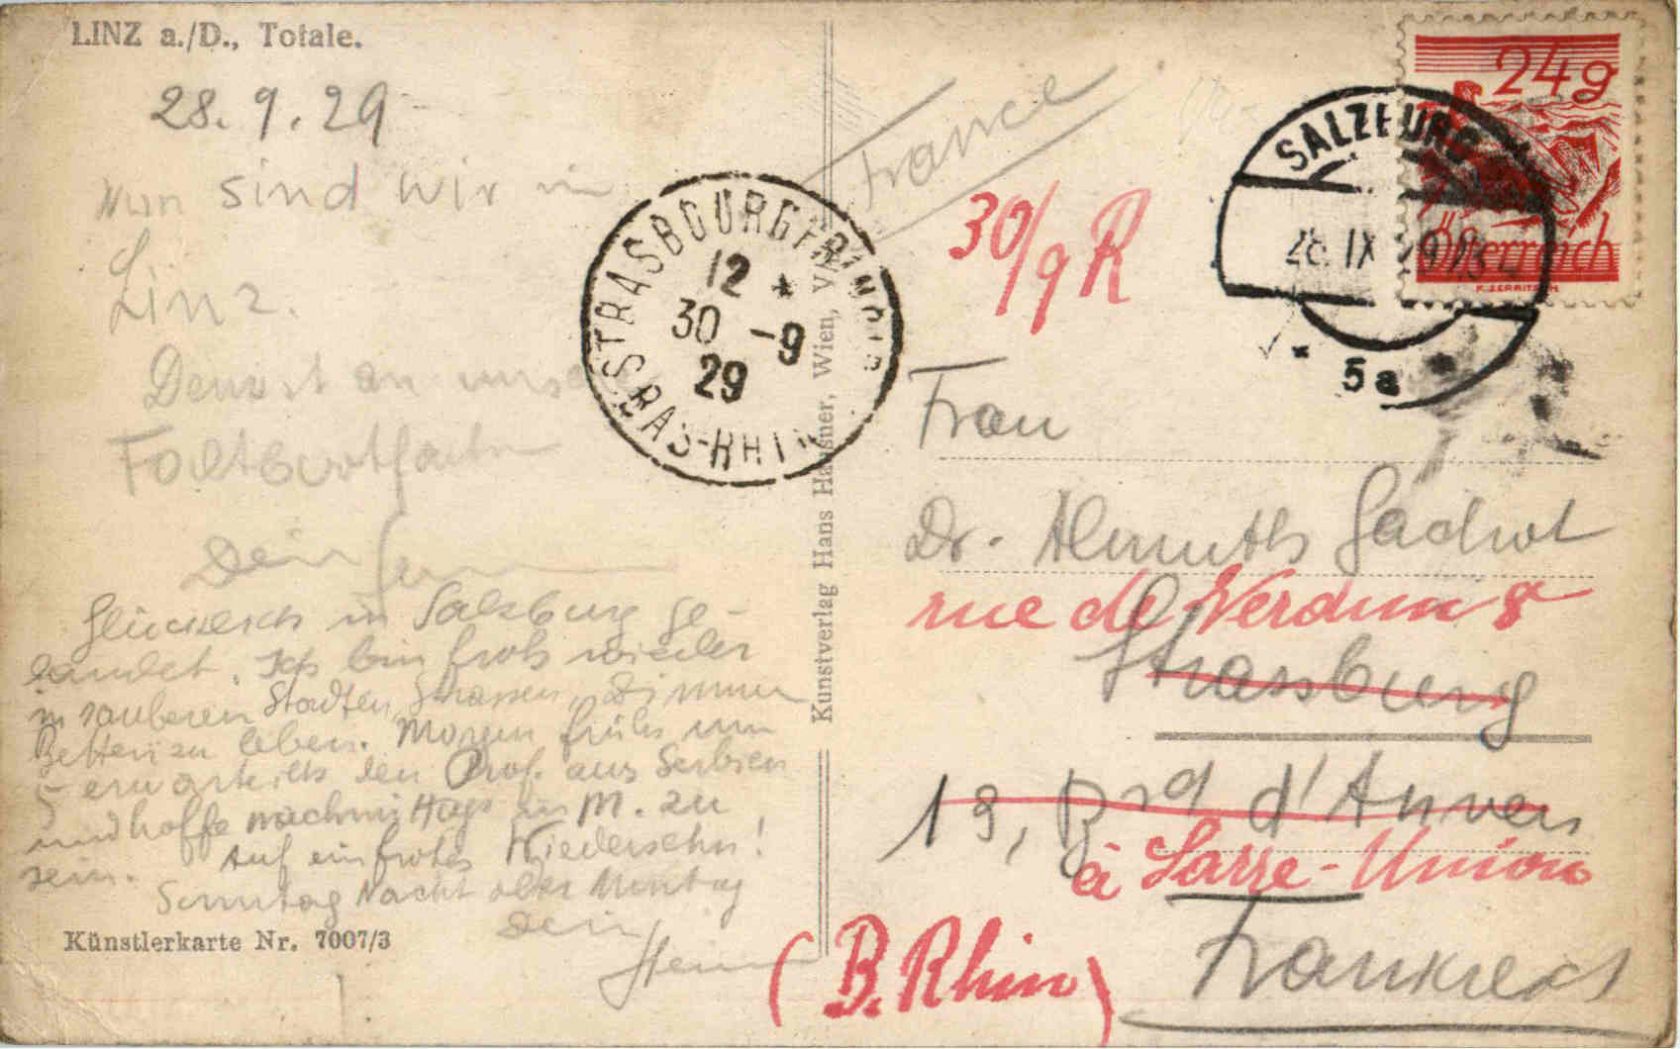 LINZ a./D., Totale.
28.9.29
Nun sind wir in
Linz.
an
Dein
Glücklich in Salzburg ge-
landet. Ich bin froh wieder
in sauberen Städten, Strassen, Zimmern
Betten zu leben. Morgen früh um
5 erwarte ich den Prof. aus Serbien
und hoffe nachmittags in M. zu
sein. Auf ein frohes Wiedersehn!
Sonntag Nacht oder Montag
Dein
Künstlerkarte Nr. 7007/3
Kunstverlag Hans Hausner, Wien, V
STRASBOURG
12 *
30 -9
29
BAS-RHIN
France
30/9 R
24g
Österreich
SALZBURG
28.IX
5a
Frau
Dr.
rue de Verdun 8
Strassburg
19, Brd d'Anvers
à Sarre-Union
(B. Rhin)
Frankreich